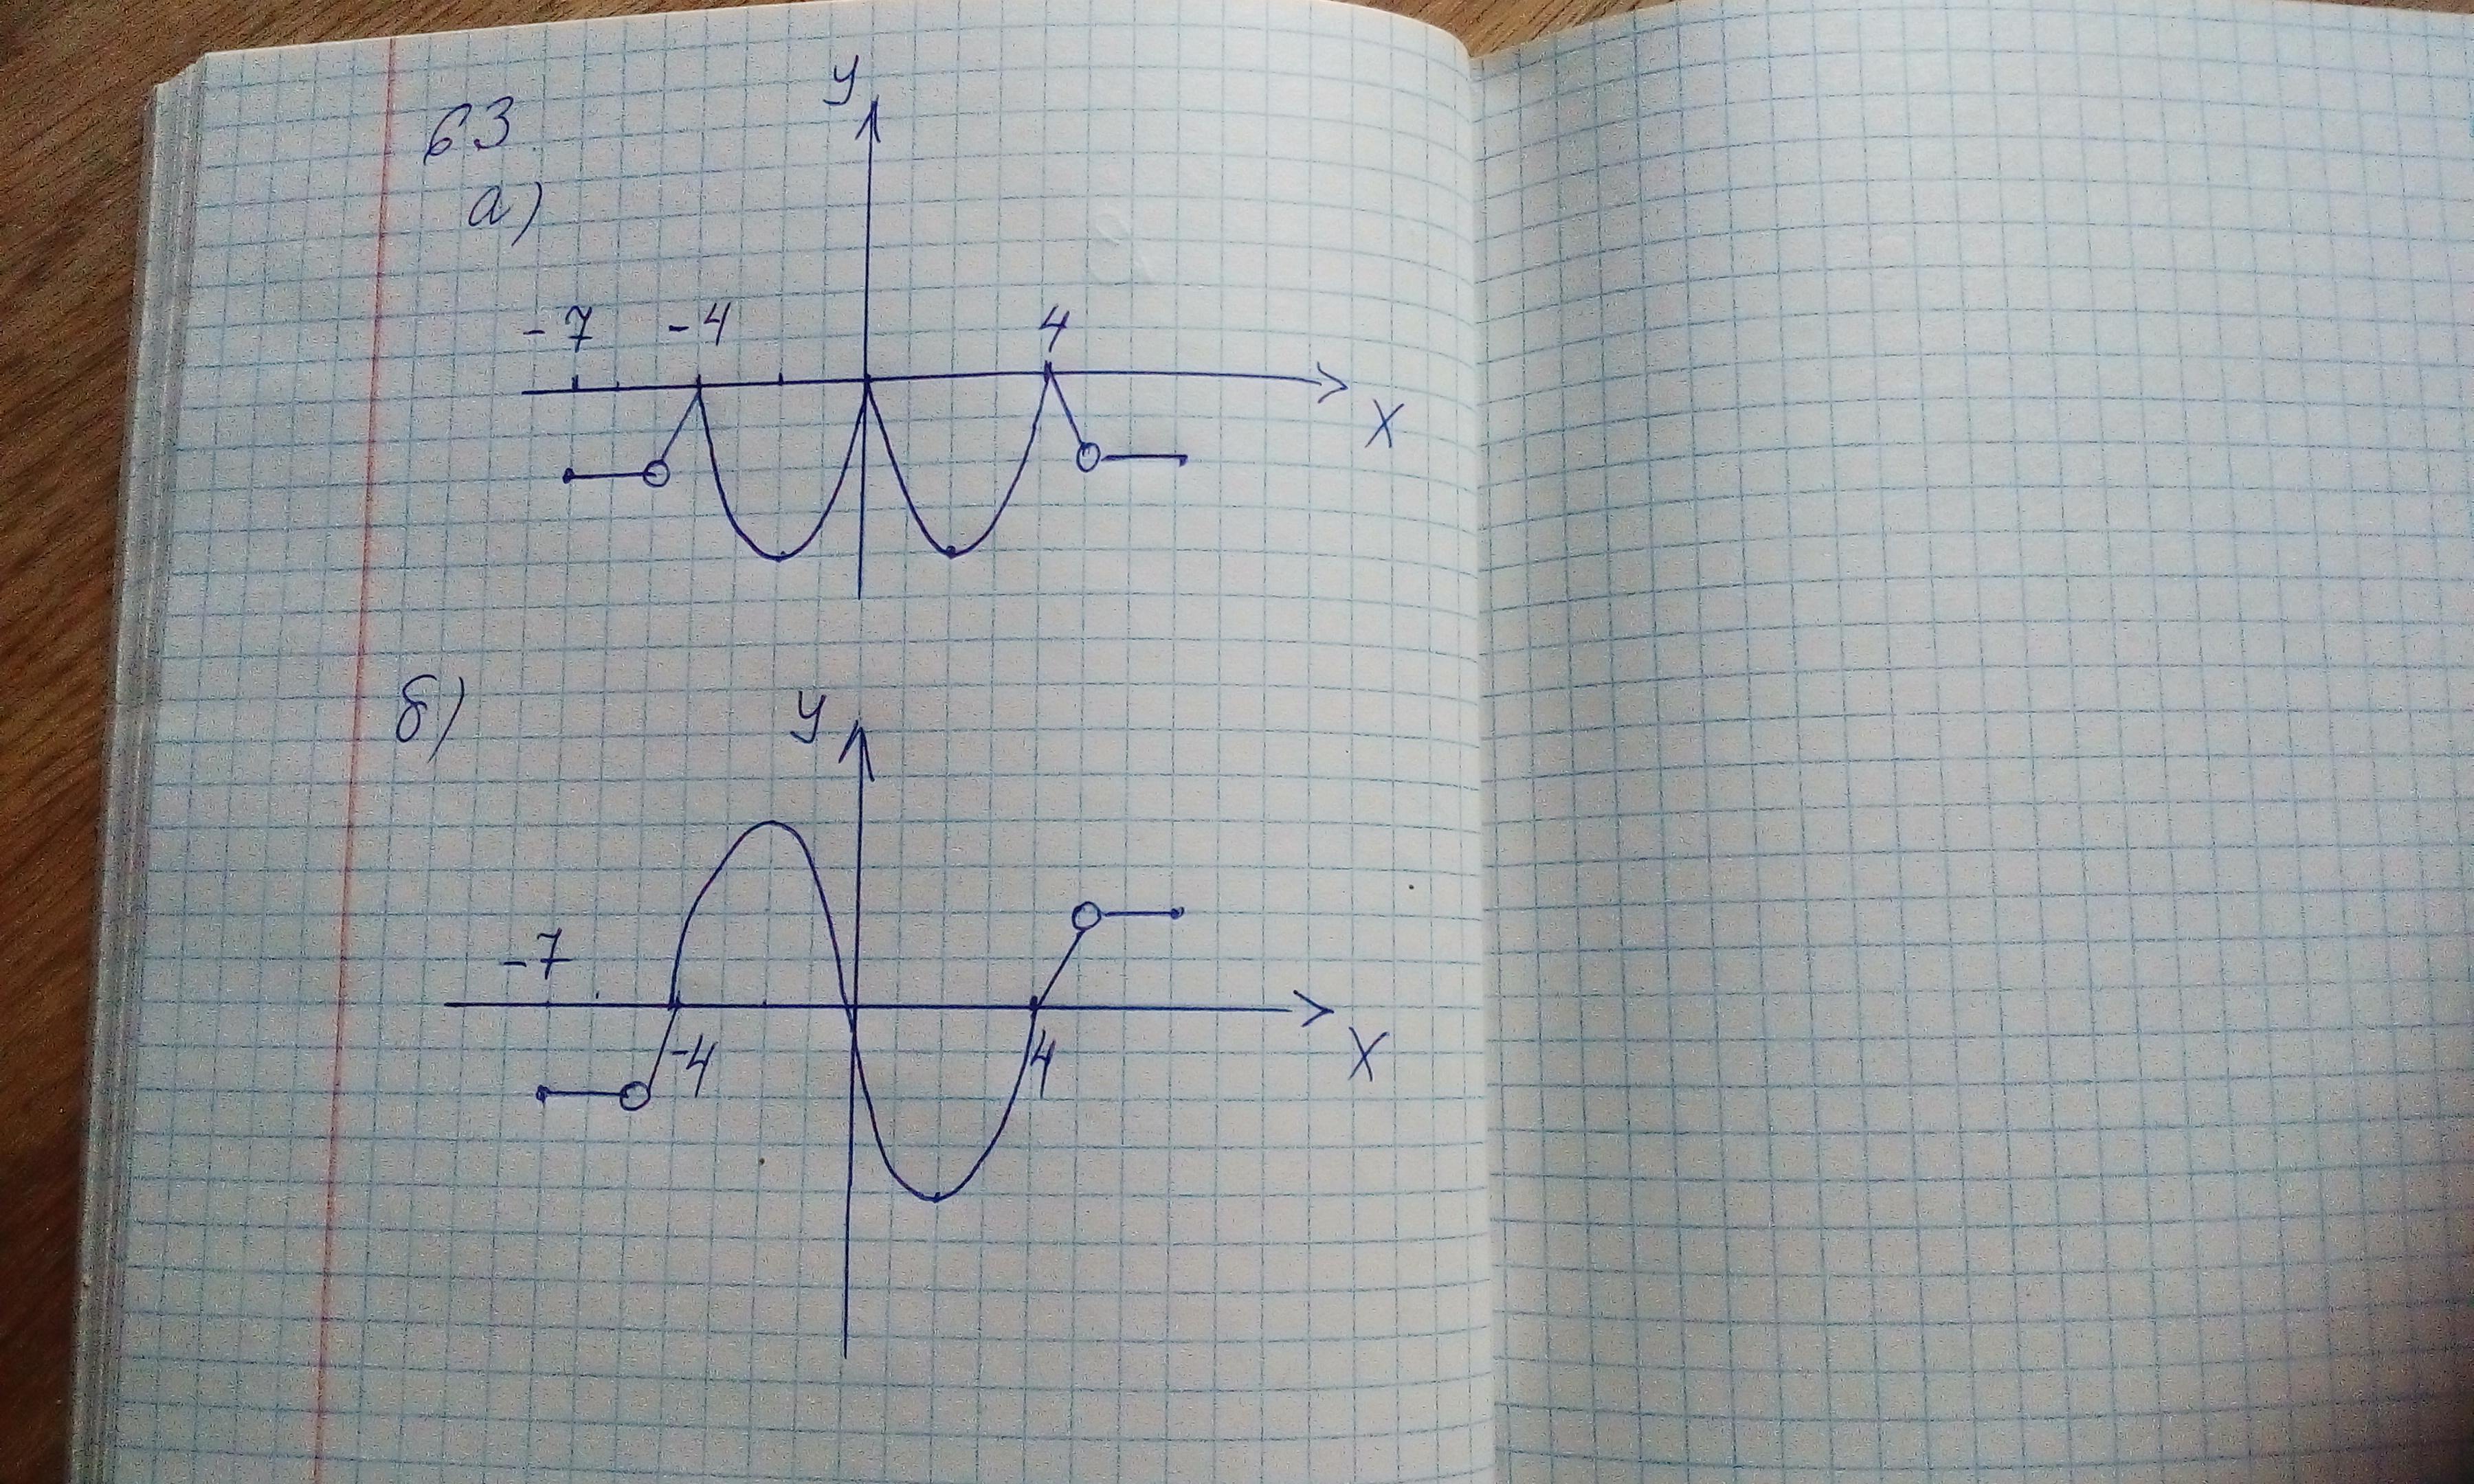 63.
а)
y
-7 -4 4
x
б)
y
-7
-4 4
x